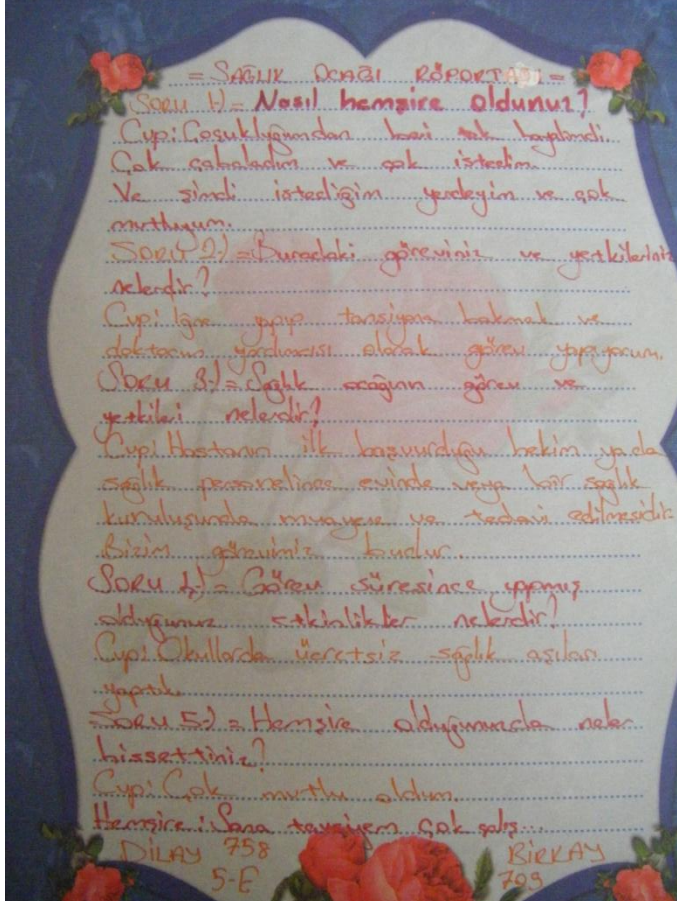 = SAĞLIK OCAĞI RÖPORTAJI =
SORU 1-) = Nasıl hemşire oldunuz?
Cvp: Çocukluğumdan beri tek hayalimdi.
Çok çabaladım ve çok istedim.
Ve şimdi istediğim yerdeyim ve çok
mutluyum.
SORU 2-) = Buradaki göreviniz ve yetkileriniz
nelerdir?
Cvp: İğne yapıp tansiyona bakmak ve
doktorun yardımcısı olarak görev yapıyorum.
SORU 3-) = Sağlık ocağının görev ve
yetkileri nelerdir?
Cvp: Hastanın ilk başvurduğu hekim yada
sağlık personelince evinde veya bir sağlık
kuruluşunda muayene ve tedavi edilmesidir.
Bizim görevimiz budur.
SORU 4-) = Görev süresince yapmış
olduğunuz etkinlikler nelerdir?
Cvp: Okullarda ücretsiz sağlık aşıları
yaptık.
SORU 5-) = Hemşire olduğunuzda neler
hissettiniz?
Cvp: Çok mutlu oldum.
Hemşire: Sana tavsiyem çok çalış...
DİLAY 758 BİRKAY
5-F 793